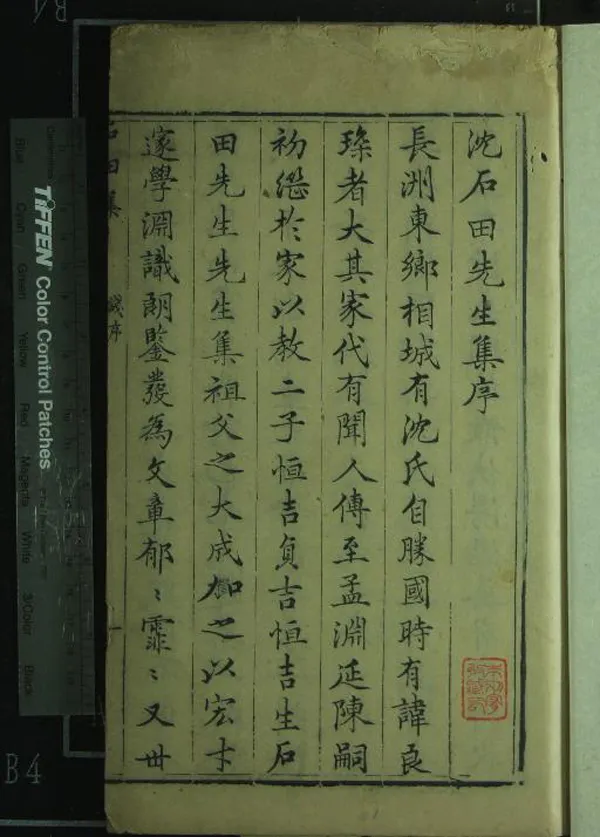 沈石田先生集序
長洲東鄉相城有沈氏自勝國時有諱良
琛者大其家代有聞人傳至孟淵延陳嗣
初繼於家以教二子恒吉貞吉恒吉生石
田先生先生集祖父之大成加之以宏才
邃學淵識朗鑒發為文章郁〻霏〻又世
石田集
序
TIFFEN Color Control Patches
Blue
Cyan
Green
Yellow
Red
Magenta
White
3/Color
Black
B4